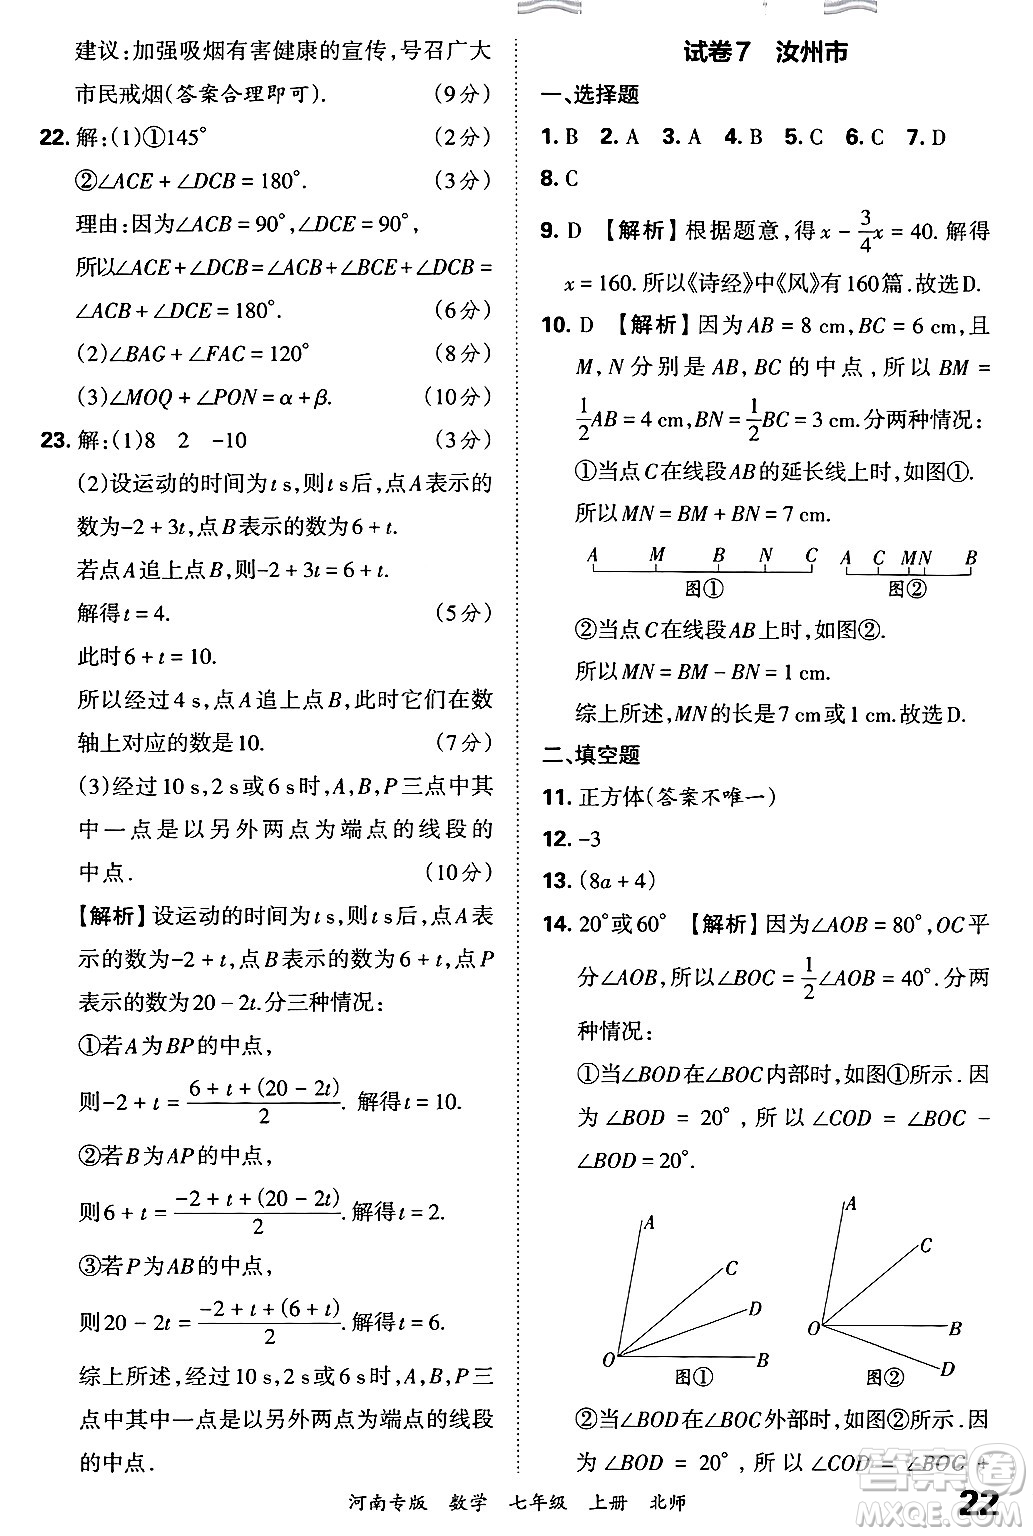 建议:加强吸烟有害健康的宣传,号召广大
市民戒烟(答案合理即可). (9分)
22. 解:(1)①145° (2分)
②∠ACE + ∠DCB = 180°. (3分)
理由:因为∠ACB = 90°, ∠DCE = 90°,
所以∠ACE + ∠DCB = ∠ACB + ∠BCE + ∠DCB =
∠ACB + ∠DCE = 180°. (6分)
(2)∠BAG + ∠FAC = 120° (8分)
(3)∠MOQ + ∠PON = α + β. (10分)
23. 解:(1)8 2 -10 (3分)
(2)设运动的时间为t s,则t s后,点A表示的
数为-2 + 3t,点B表示的数为6 + t.
若点A追上点B,则-2 + 3t = 6 + t.
解得t = 4. (5分)
此时6 + t = 10.
所以经过4 s,点A追上点B,此时它们在数
轴上对应的数是10. (7分)
(3)经过10 s,2 s或6 s时,A,B,P三点中其
中一点是以另外两点为端点的线段的
中点. (10分)
【解析】设运动的时间为t s,则t s后,点A表
示的数为-2 + t,点B表示的数为6 + t,点P
表示的数为20 - 2t.分三种情况:
①若A为BP的中点,
则-2 + t = \frac{6 + t + (20 - 2t)}{2}. 解得t = 10.
②若B为AP的中点,
则6 + t = \frac{-2 + t + (20 - 2t)}{2}. 解得t = 2.
③若P为AB的中点,
则20 - 2t = \frac{-2 + t + (6 + t)}{2}. 解得t = 6.
综上所述,经过10 s,2 s或6 s时,A,B,P三
点中其中一点是以另外两点为端点的线段
的中点.
试卷7 汝州市
一、选择题
1. B 2. A 3. A 4. B 5. C 6. C 7. D
8. C
9. D 【解析】根据题意,得x - \frac{3}{4}x = 40. 解得
x = 160. 所以《诗经》中《风》有160篇.故选D.
10. D 【解析】因为AB = 8 cm, BC = 6 cm,且
M, N分别是AB, BC的中点,所以BM =
\frac{1}{2}AB = 4 cm, BN = \frac{1}{2}BC = 3 cm.分两种情况:
①当点C在线段AB的延长线上时,如图①.
所以MN = BM + BN = 7 cm.
A M B N C A C MN B
图① 图②
②当点C在线段AB上时,如图②.
所以MN = BM - BN = 1 cm.
综上所述,MN的长是7 cm或1 cm.故选D.
二、填空题
11. 正方体(答案不唯一)
12. -3
13. (8a + 4)
14. 20°或60° 【解析】因为∠AOB = 80°, OC平
分∠AOB,所以∠BOC = \frac{1}{2}∠AOB = 40°.分两
种情况:
①当∠BOD在∠BOC内部时,如图①所示.因
为∠BOD = 20°,所以∠COD = ∠BOC -
∠BOD = 20°.
A
C
D
O B
图①
A
C
O B
D
图②
②当∠BOD在∠BOC外部时,如图②所示.因
为∠BOD = 20°,所以∠COD = ∠BOC +
河南专版 数学 七年级 上册 北师 22